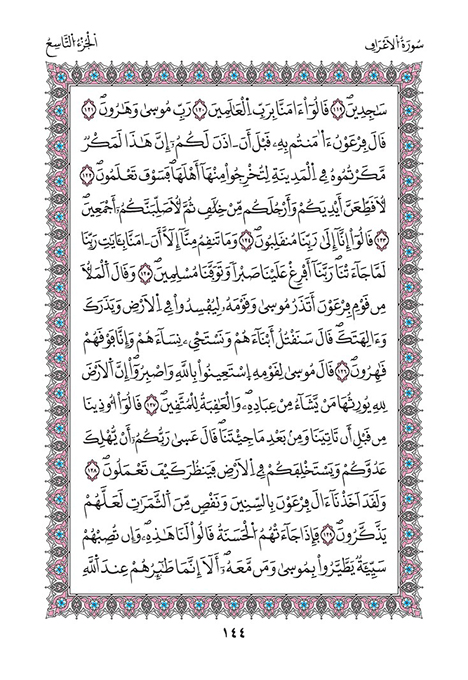 سُورَةُ الَاعْرَافِ
الْجُزْءُ التَّاسِعُ
سَٰجِدِينَ ١١٩ قَالُوٓاْ ءَامَنَّا بِرَبِّ الْعَٰلَمِينَ ١٢٠ رَبِّ مُوسَىٰ وَهَٰرُونَ ١٢١
قَالَ فِرْعَوْنُ ءَاٰمَنتُم بِهِۦ قَبْلَ أَنَ اٰذَنَ لَكُمُۥٓ إِنَّ هَٰذَا لَمَكْرٌ
مَّكَرْتُمُوهُ فِي الْمَدِينَةِ لِتُخْرِجُواْ مِنْهَآ أَهْلَهَا فَسَوْفَ تَعْلَمُونَ ١٢٢
لَأُقَطِّعَنَّ أَيْدِيَكُمْ وَأَرْجُلَكُم مِّنْ خِلَٰفٍ ثُمَّ لَأُصَلِّبَنَّكُمُۥٓ أَجْمَعِينَ
١٢٣ قَالُوٓاْ إِنَّآ إِلَىٰ رَبِّنَا مُنقَلِبُونَ ١٢٤ وَمَا تَنقِمُ مِنَّآ إِلَّآ أَنَ اٰمَنَّا بِـَٔايَٰتِ رَبِّنَا
لَمَّا جَآءَتْنَا رَبَّنَآ أَفْرِغْ عَلَيْنَا صَبْراً وَتَوَفَّنَا مُسْلِمِينَ ١٢٥ وَقَالَ الْمَلَأُ
مِن قَوْمِ فِرْعَوْنَ أَتَذَرُ مُوسَىٰ وَقَوْمَهُۥ لِيُفْسِدُواْ فِي الَارْضِ وَيَذَرَكَ
وَءَالِهَتَكَ قَالَ سَنَقْتُلُ أَبْنَآءَهُمْ وَنَسْتَحْيِۦ نِسَآءَهُمْ وَإِنَّا فَوْقَهُمْ
قَٰهِرُونَ ١٢٦ قَالَ مُوسَىٰ لِقَوْمِهِ اِسْتَعِينُواْ بِاللَّهِ وَاصْبِرُوٓاْ إِنَّ الَارْضَ
لِلهِ يُورِثُهَا مَنْ يَّشَآءُ مِنْ عِبَادِهِۦ وَالْعَٰقِبَةُ لِلْمُتَّقِينَ ١٢٧ قَالُوٓاْ أُوذِينَا
مِن قَبْلِ أَن تَاتِيَنَا وَمِنۢ بَعْدِ مَا جِئْتَنَا قَالَ عَسَىٰ رَبُّكُمُۥٓ أَنْ يُّهْلِكَ
عَدُوَّكُمْ وَيَسْتَخْلِفَكُمْ فِي الَارْضِ فَيَنظُرَ كَيْفَ تَعْمَلُونَ ١٢٨
وَلَقَدَ اَخَذْنَآ ءَالَ فِرْعَوْنَ بِالسِّنِينَ وَنَقْصٍ مِّنَ الثَّمَرَٰتِ لَعَلَّهُمْ
يَذَّكَّرُونَ ١٢٩ فَإِذَا جَآءَتْهُمُ الْحَسَنَةُ قَالُواْ لَنَا هَٰذِهِۦ وَإِن تُصِبْهُمْ
سَيِّئَةٌ يَطَّيَّرُواْ بِمُوسَىٰ وَمَن مَّعَهُۥٓ أَلَآ إِنَّمَا طَٰٓئِرُهُمْ عِندَ اللَّهِ
١٤٤